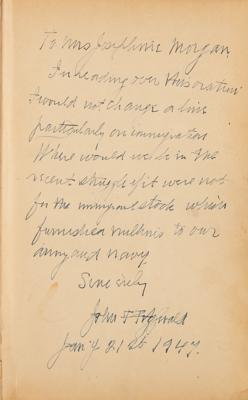 To Mrs Josephine Morgan.
In reading over this oration
I would not change a line
particularly on immigration
Where would we be in the
recent struggle if it were not
for the immigrant stock which
furnished millions to our
army and navy
Sincerely
John F Fitzgerald
Jan'y 21st 1947.